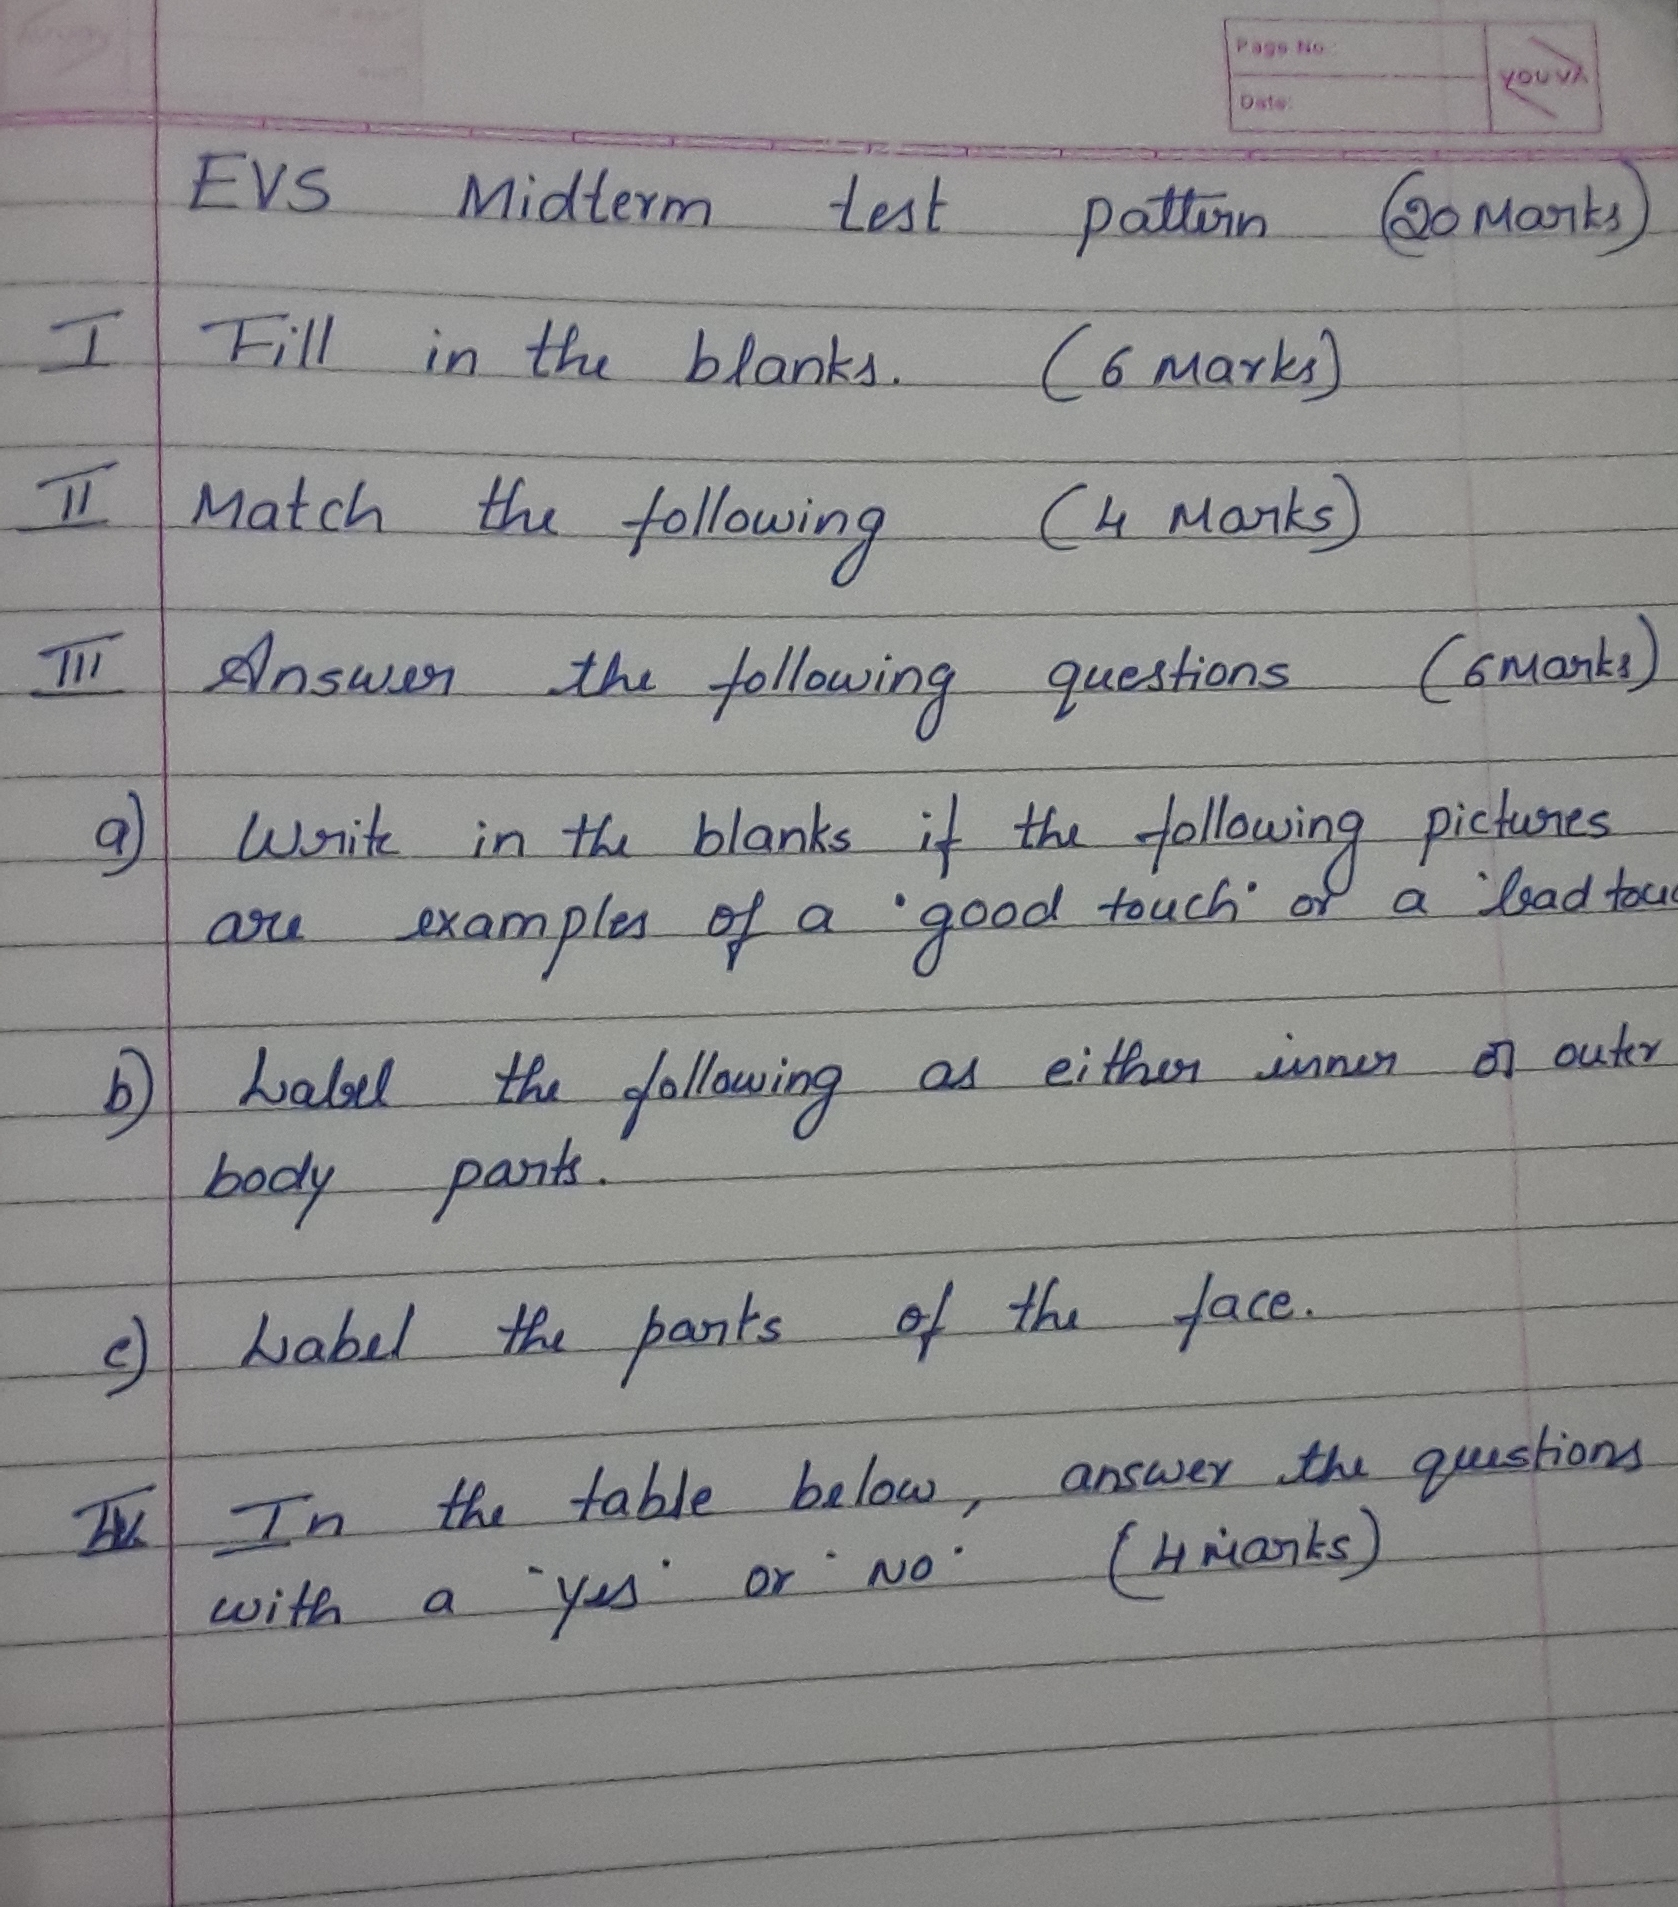 Page No:
Date:
YOUVA
EVS Midterm test pattern (20 Marks)
I Fill in the blanks. (6 Marks)
II Match the following (4 Marks)
III Answer the following questions (6 Marks)
a) Write in the blanks if the following pictures
are examples of a 'good touch' or a 'bad touc
b) Label the following as either inner or outer
body parts.
c) Label the parts of the face.
IV In the table below, answer the questions
with a 'yes' or 'NO' (4 marks)